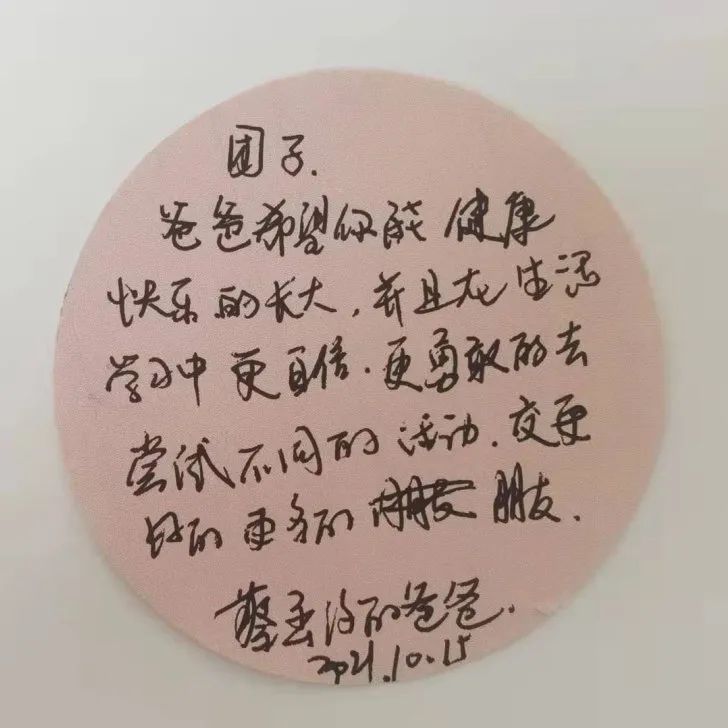 团子.
爸爸希望你能健康
快乐的长大,并且在生活
学习中更自信.更勇敢的去
尝试不同的活动.交更
好的更多的 朋友.
的爸爸.
2021.10.15